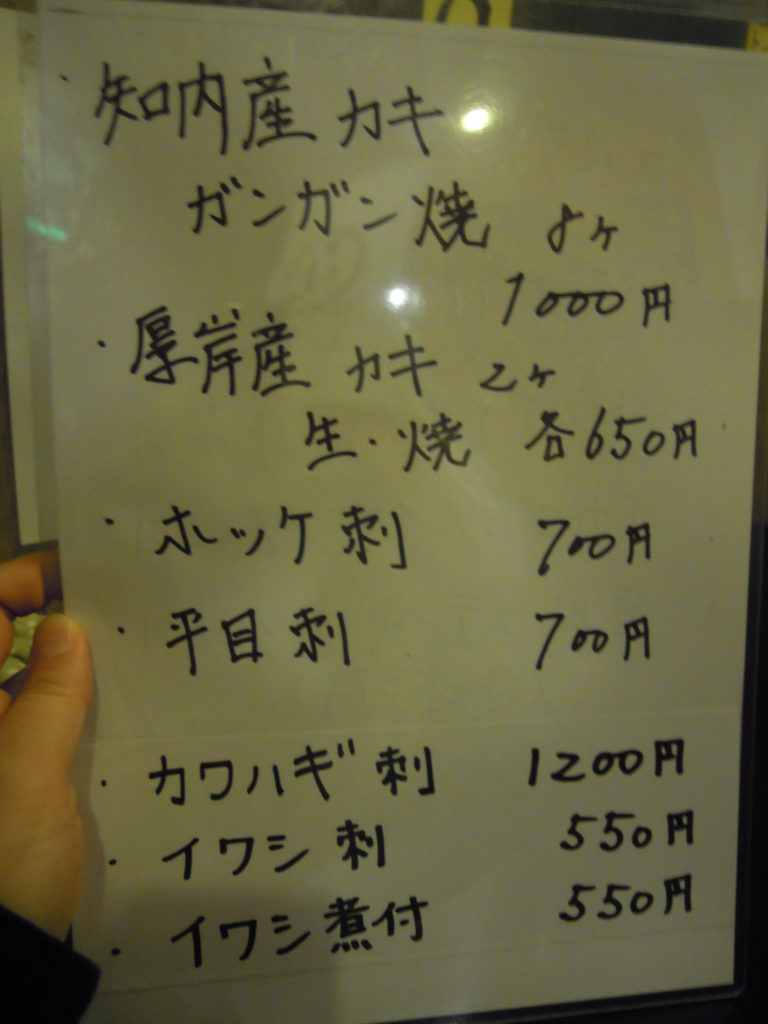 ・知内産 カキ
ガンガン焼 8ヶ
1000円
・厚岸産 カキ 2ヶ
生・焼 各650円
・ホッケ刺 700円
・平目刺 700円
・カワハギ刺 1200円
・イワシ刺 550円
・イワシ煮付 550円